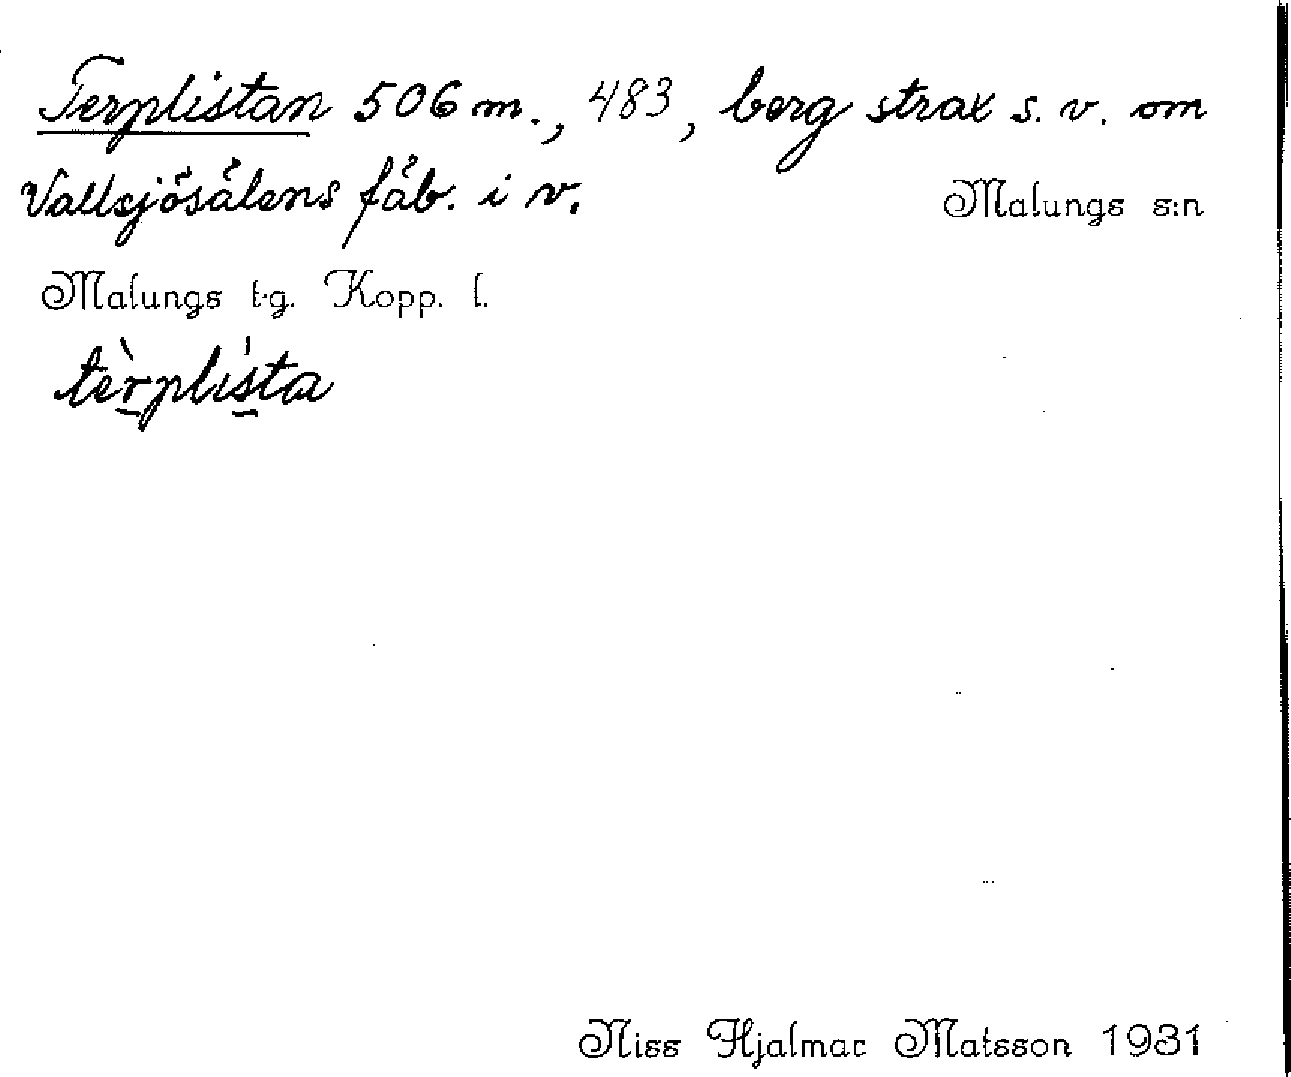 Terplistan 506 m., 483, berg strax s. v. om
Vallsjösålens fäb. i v.
Malungs s:n
Malungs t-g. Kopp. l.
tèrplísta
Niss Hjalmar Matsson 1931